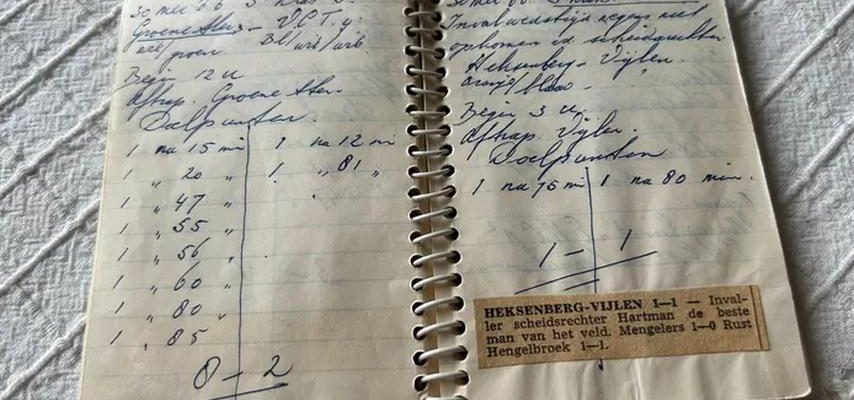 30 mei 66 3e klas
Groene Ster - V.C.T. 4
wit/groen Bl/wit/wit
Begin 12 u
Aftrap. Groene Ster
Doelpunten.
1 na 15 min 1 na 12 min
1 " 20 " 1 " 81 "
1 " 47 "
1 " 55 "
1 " 56 "
1 " 60 "
1 " 80 "
1 " 85
8 - 2
30 mei 66.
Invalwedstrijd wegens niet
opkomen v/d scheidsrechter
Heksenberg - Vijlen.
oranje/blauw -
Begin 3 u.
Aftrap. Vijlen.
Doelpunten
1 na 75 min 1 na 80 min.
1 - 1
HEKSENBERG-VIJLEN 1—1 — Inval-
ler scheidsrechter Hartman de beste
man van het veld. Mengelers 1—0 Rust
Hengelbroek 1—1.